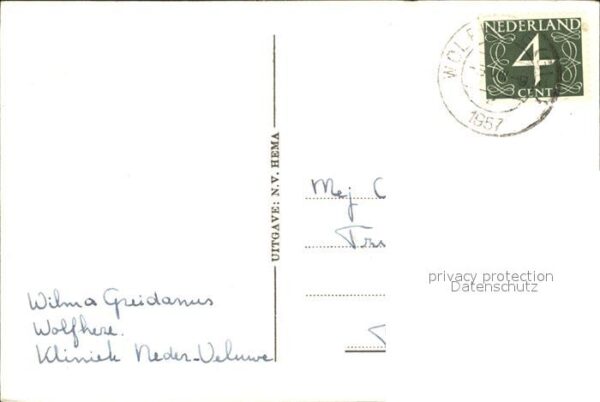 NEDERLAND
4
CENT
WOLF
1957
UITGAVE: N.V. HEMA
Mej
privacy protection
Datenschutz
Wilma Greidanus
Wolfheze.
Kliniek Neder-Veluwe